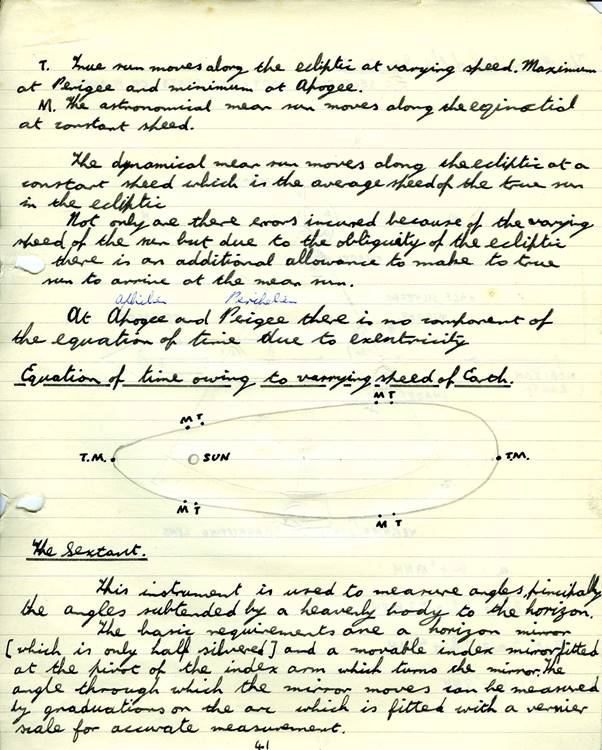 T. True sun moves along the ecliptic at varying speed. Maximum
at Perigee and minimum at Apogee.
M. The astronomical mean sun moves along the eqinoctial
at constant speed.
The dynamical mean sun moves along the ecliptic at a
constant speed which is the average speed of the true sun
in the ecliptic
Not only are there errors incured because of the varying
speed of the sun but due to the obliquity of the ecliptic
there is an additional allowance to make to true
sun to arrive at the mean sun.
At Apogee and Perigee there is no component of
the equation of time due to exentricity
Equation of time owing to varrying speed of Earth.
M T
M T
T.M.
SUN
T.M.
M T
M T
The Sextant.
This instrument is used to measure angles, principally
the angles subtended by a heavenly body to the horizon.
The basic requirements are a horizon mirror
[which is only half silvered] and a movable index mirror fitted
at the pivot of the index arm which turns the mirror. The
angle through which the mirror moves can be measured
by graduations on the arc which is fitted with a vernier
scale for accurate measurement.
41